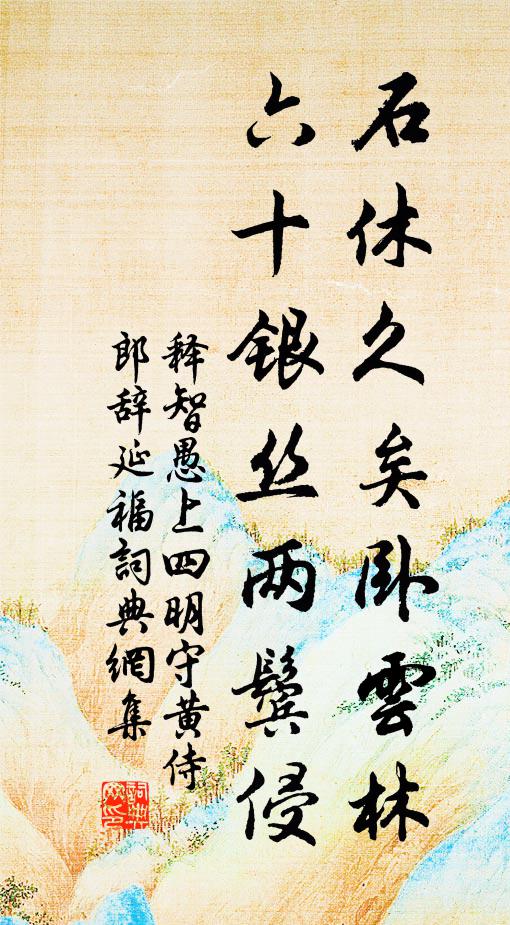 石休久矣卧雲林
六十银丝两鬓侵
释智愚上四明守黄侍
郎辞延福詞典網集